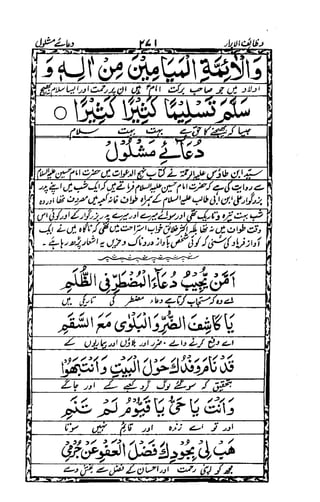 وظائف الابرار ۲۷۱ دعائے مشلول
وَالْاَئِمَّةِ الْمَيَامِيْنَ مِنْ اٰلِهٖ وَ
اولاد میں جو صاحب برکت امام ہیں ان پر رحمت اور ایسا سلام بھیج
سَلَّمَ تَسْلِيْمًا كَثِيْرًا كَثِيْرًا ○
جیسا کہ بھیجنے کا حق ہے بہت بہت سلام
دُعَائے مَشْلُول
سید ابن طاؤس علیہ الرحمۃ نے کتاب مہج الدعوات میں حضرت امام حسین علیہ السلام
سے روایت کی ہے کہ حضرت امام حسین علیہ السلام فرماتے ہیں کہ ایک شب میں اپنے پدر
بزرگوار علی ابن ابی طالب علیہ السلام کے ہمراہ طواف خانہ کعبہ میں مصروف تھا اور وہ
شب بہت تیرہ و تاریک تھی اور سوائے میرے اور میرے پدر بزرگوار کے اور کوئی اس
وقت طواف میں نہ تھا بلکہ اکثر خلائق خواب استراحت میں تھی کہ ناگاہ میں نے ایک
آواز فریاد کی سنی کہ کوئی شخص بآواز دردناک و حزیں یہ اشعار پڑھ رہا ہے۔
اَمَّنْ يُّجِيْبُ دُعَآءَ الْمُضْطَرِّ فِي الظُّلَمِ
اے وہ کہ مستجاب کرتا ہے دعاء مضطر کی تاریکی میں
يَا كَاشِفَ الضُّرِّ وَالْبَلْوٰى مَعَ السَّقَمِ
اے دفع کرنے والے ضرر اور بلاؤں اور بیماریوں کے
قَدْ نَامَ وَفْدُكَ حَوْلَ الْبَيْتِ وَانْتَبَهُوْا
بتحقیق کہ سو گئے لوگ گرد کعبے کے اور جاگے
وَاَنْتَ يَا حَيُّ يَا قَيُّوْمُ لَمْ تَنَمِ
اور تو اے زندہ اور قائم نہیں سوتا
هَبْ لِيْ بِجُوْدِكَ فَضْلَ الْعَفْوِ عَنْ جُرُمِيْ
مجھ کو اپنی رحمت اور احسان کے فضل سے بخش دے